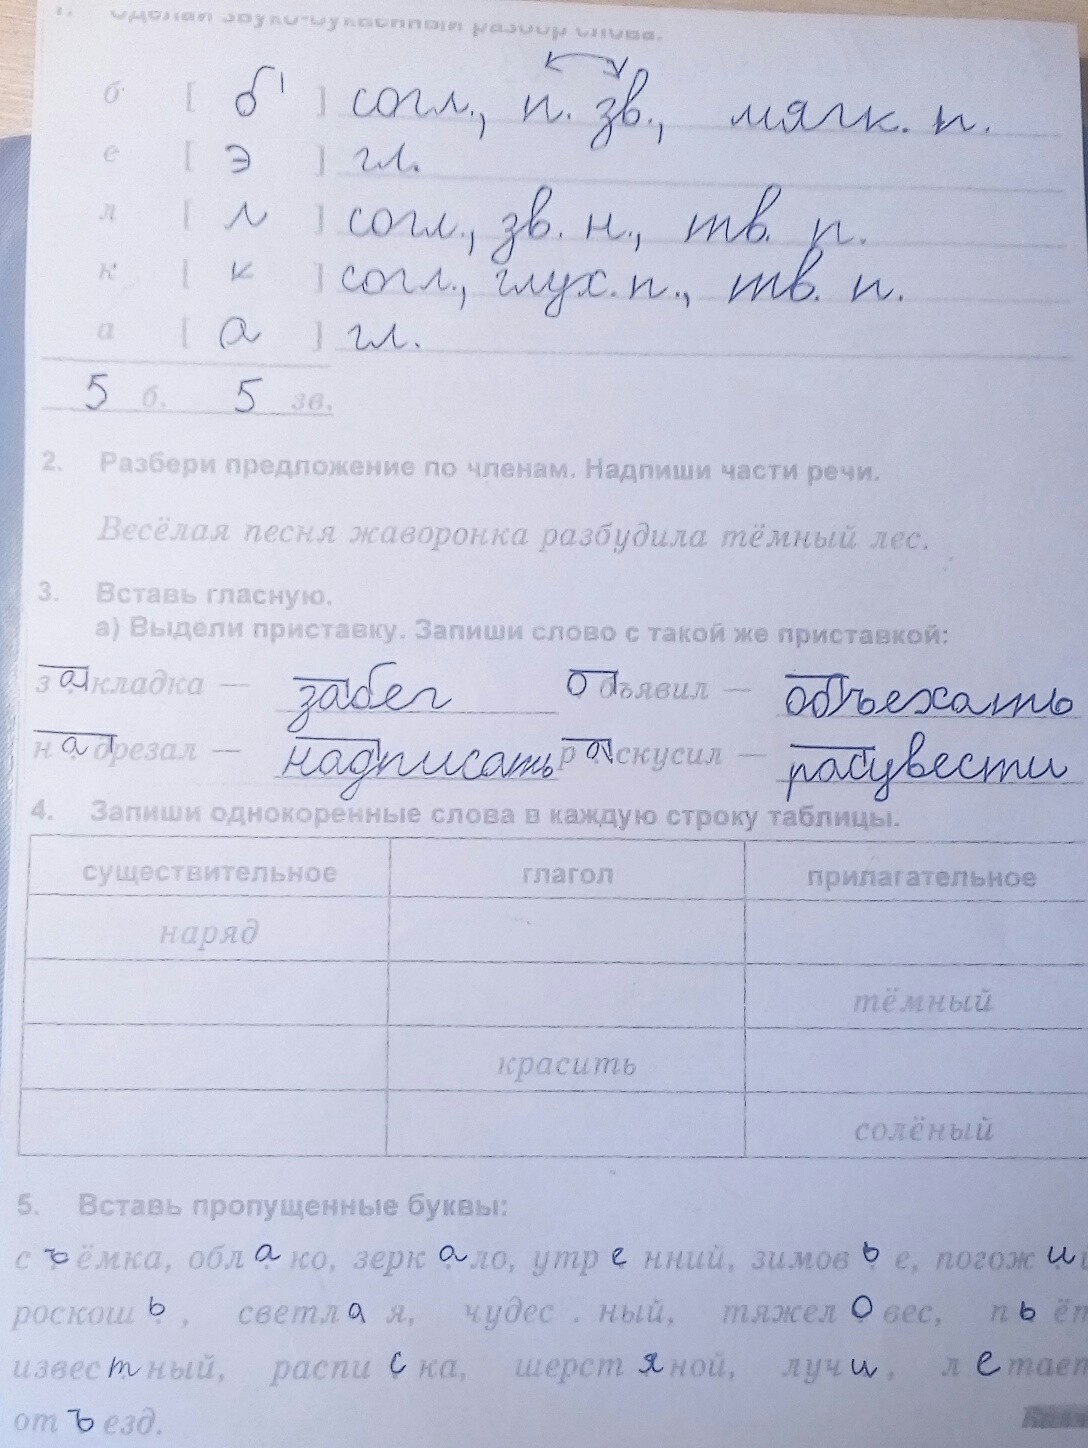 1. Сделай звуко-буквенный разбор слова.
б [ б' ] согл., п. зв., мягк. п.
е [ э ] гл.
л [ л ] согл., зв. н., тв. п.
к [ к ] согл., глух. п., тв. п.
а [ а ] гл.
5 б. 5 зв.
2. Разбери предложение по членам. Надпиши части речи.
Весёлая песня жаворонка разбудила тёмный лес.
3. Вставь гласную.
а) Выдели приставку. Запиши слово с такой же приставкой:
закладка — забег объявил — объехать
надрезал — надписать раскусил —
4. Запиши однокоренные слова в каждую строку таблицы.
существительное глагол прилагательное
наряд
тёмный
красить
солёный
5. Вставь пропущенные буквы:
съёмка, облако, зеркало, утренний, зимовье, погожи
роскошь, светлая, чудес . ный, тяжеловес, пьёт
известный, расписка, шерстяной, лучи, летает
отъезд.